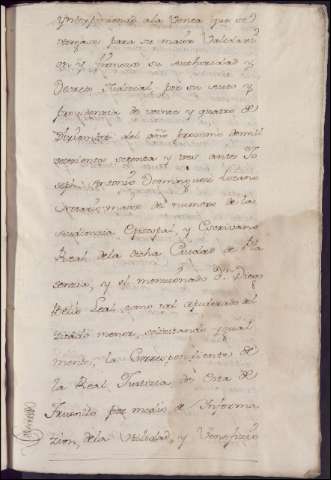 interponiendo ala Venta que se
otorgase para su maior Validazi
on, y firmeza su Authoridad y
Decreto Judicial por su Auto y
providencia de veinte y quatro de
Diziembre del año proximo de mil
setecientos setenta y tres ante Jo
seph Antonio Dominguez
Notario maior del numero de la
Audiencia Episcopal, y Escrivano
Real de la dicha Ciudad de Pla
sencia, y el mencionado Dn. Diego
Felix Leal como tal apoderado del
citado menor, solicitando igual
mente, la Correspondiente de
la Real Justicia de esta de
Truxillo por medio de Informa
zion, de la Utilidad, y Veneficio